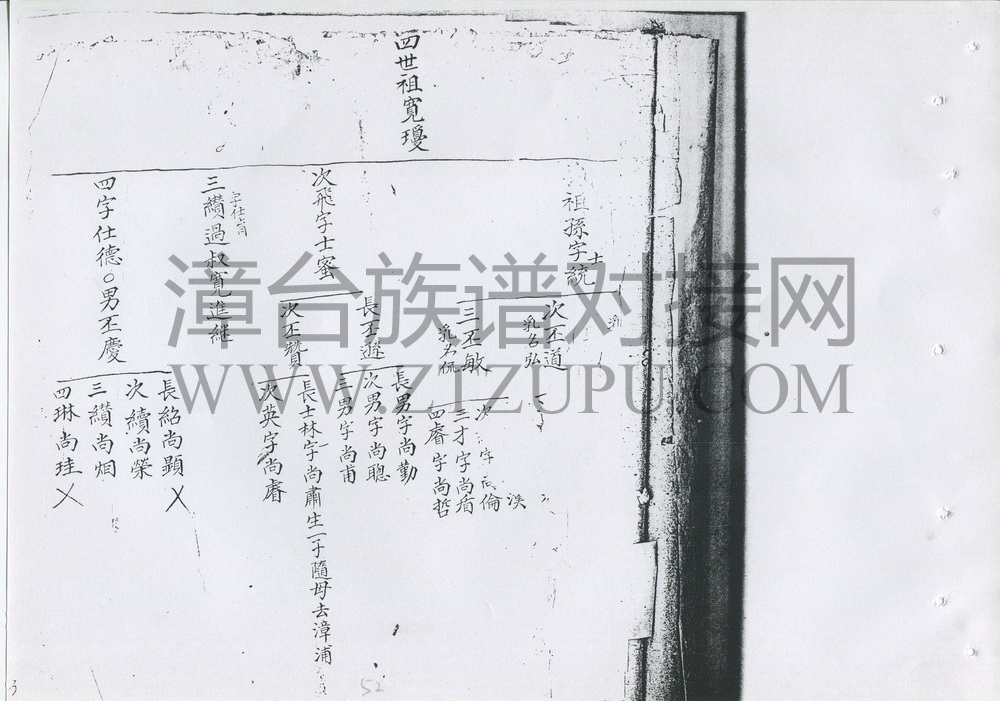 四世祖寬瓊
祖孫字士統
次丕道
乳名弘
三丕敏
乳名侃
次字尚倫
三才字尚盾
四睿字尚哲
次飛字士蜜
長丕遊
長男字尚勤
次男字尚聰
三男字尚甫
次丕贊
長士林字尚肅生一子隨母去漳浦
次英字尚睿
三纘過叔寬進継
字仕肖
四字仕德○男丕慶
長紹尚顯╳
次續尚榮
三纘尚烱
四琳尚珪╳
52
3
漳台族谱对接网
WWW.ZTZUPU.COM